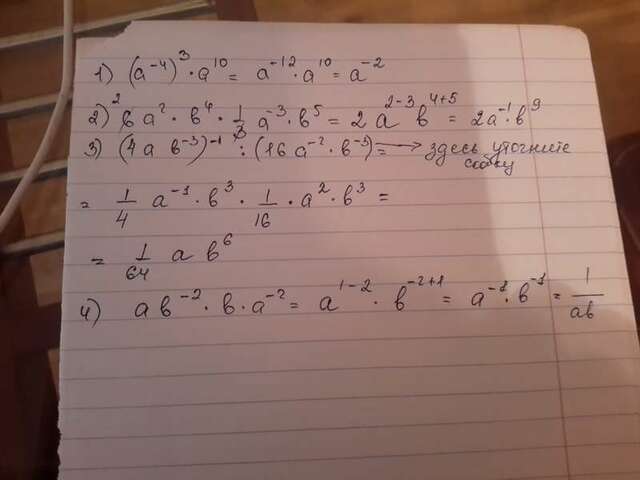 1) (a⁻⁴)³ · a¹⁰ = a⁻¹² · a¹⁰ = a⁻²
2) ²6a² · b⁴ · 1/3 a⁻³ · b⁵ = 2a²⁻³ b⁴⁺⁵ = 2a⁻¹ · b⁹
3) (4a b⁻³)⁻¹ : (16a⁻² · b⁻³) = → здесь уточните
скобку
= 1/4 a⁻¹ · b³ · 1/16 · a² · b³ =
= 1/64 a b⁶
4) ab⁻² · b · a⁻² = a¹⁻² · b⁻²⁺¹ = a⁻¹ · b⁻¹ = 1/ab